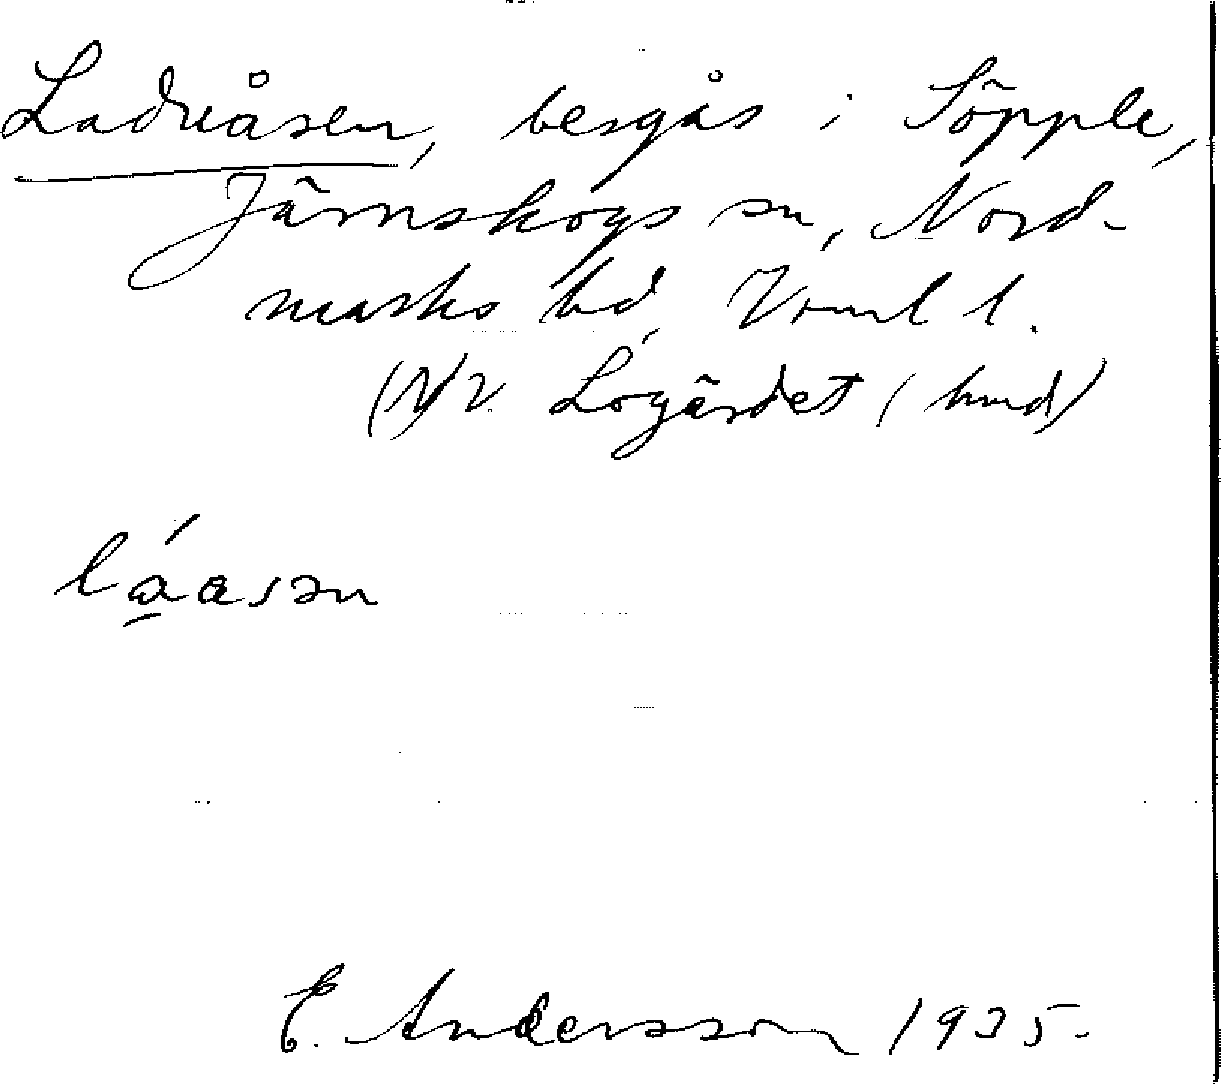 Laduåsen, bergås i Söpple,
Järnskogs sn, Nord-
marks hd, Vrml l.
(N)V. Logärdet (hmd)
lá̱asən
E. Andersson 1935.